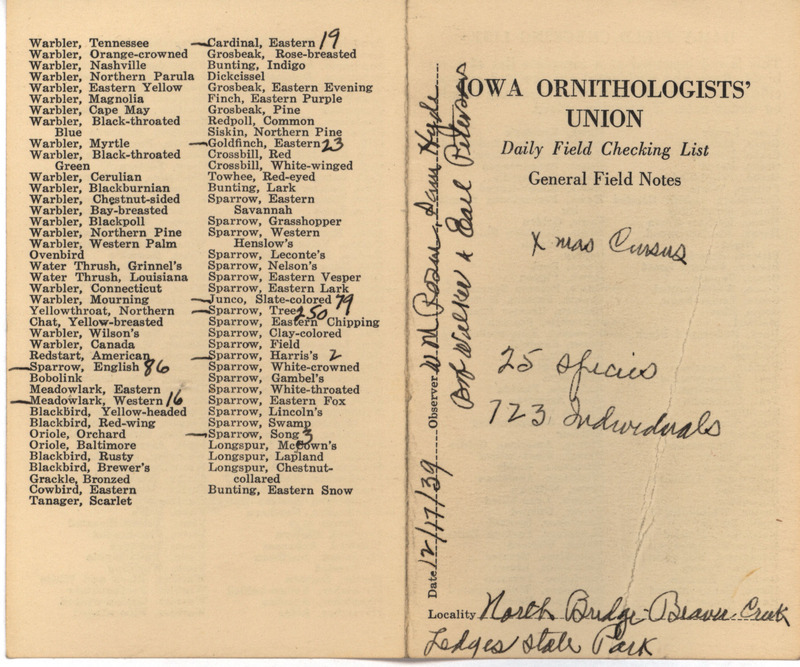 Warbler, Tennessee
Warbler, Orange-crowned
Warbler, Nashville
Warbler, Northern Parula
Warbler, Eastern Yellow
Warbler, Magnolia
Warbler, Cape May
Warbler, Black-throated
Blue
Warbler, Myrtle
Warbler, Black-throated
Green
Warbler, Cerulian
Warbler, Blackburnian
Warbler, Chestnut-sided
Warbler, Bay-breasted
Warbler, Blackpoll
Warbler, Northern Pine
Warbler, Western Palm
Ovenbird
Water Thrush, Grinnel's
Water Thrush, Louisiana
Warbler, Connecticut
Warbler, Mourning
Yellowthroat, Northern
Chat, Yellow-breasted
Warbler, Wilson's
Warbler, Canada
Redstart, American
Sparrow, English 86
Bobolink
Meadowlark, Eastern
Meadowlark, Western 16
Blackbird, Yellow-headed
Blackbird, Red-wing
Oriole, Orchard
Oriole, Baltimore
Blackbird, Rusty
Blackbird, Brewer's
Grackle, Bronzed
Cowbird, Eastern
Tanager, Scarlet
Cardinal, Eastern 19
Grosbeak, Rose-breasted
Bunting, Indigo
Dickcissel
Grosbeak, Eastern Evening
Finch, Eastern Purple
Grosbeak, Pine
Redpoll, Common
Siskin, Northern Pine
Goldfinch, Eastern 23
Crossbill, Red
Crossbill, White-winged
Towhee, Red-eyed
Bunting, Lark
Sparrow, Eastern
Savannah
Sparrow, Grasshopper
Sparrow, Western
Henslow's
Sparrow, Leconte's
Sparrow, Nelson's
Sparrow, Eastern Vesper
Sparrow, Eastern Lark
Junco, Slate-colored 79
Sparrow, Tree 250
Sparrow, Eastern Chipping
Sparrow, Clay-colored
Sparrow, Field
Sparrow, Harris's 2
Sparrow, White-crowned
Sparrow, Gambel's
Sparrow, White-throated
Sparrow, Eastern Fox
Sparrow, Lincoln's
Sparrow, Swamp
Sparrow, Song 3
Longspur, McCown's
Longspur, Lapland
Longspur, Chestnut-
collared
Bunting, Eastern Snow
IOWA ORNITHOLOGISTS'
UNION
Daily Field Checking List
General Field Notes
Xmas Census
25 species
723 Individuals
Date 12/17/39 Observer W M Rosen,
Bob Walker & Earl Peterson
Locality North Bridge-Beaver Creek
Ledges State Park